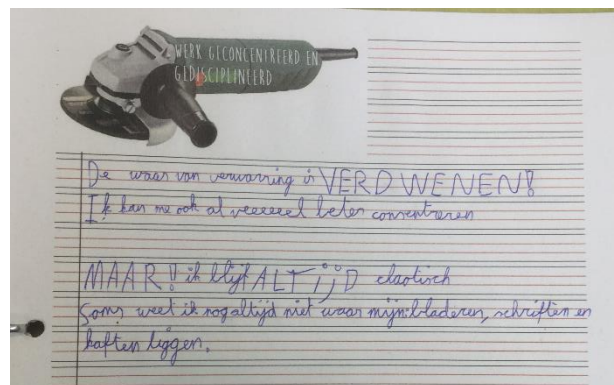 WERK GECONCENTREERD EN
GEDISCIPLINEERD
De waas van verwarring is VERDWENEN!
Ik kan me ook al veeeeeel beter consentreren
MAAR! ik blijf ALTijD chaotisch
Soms weet ik nog altijd niet waar mijn bladeren, schriften en
kaften liggen.